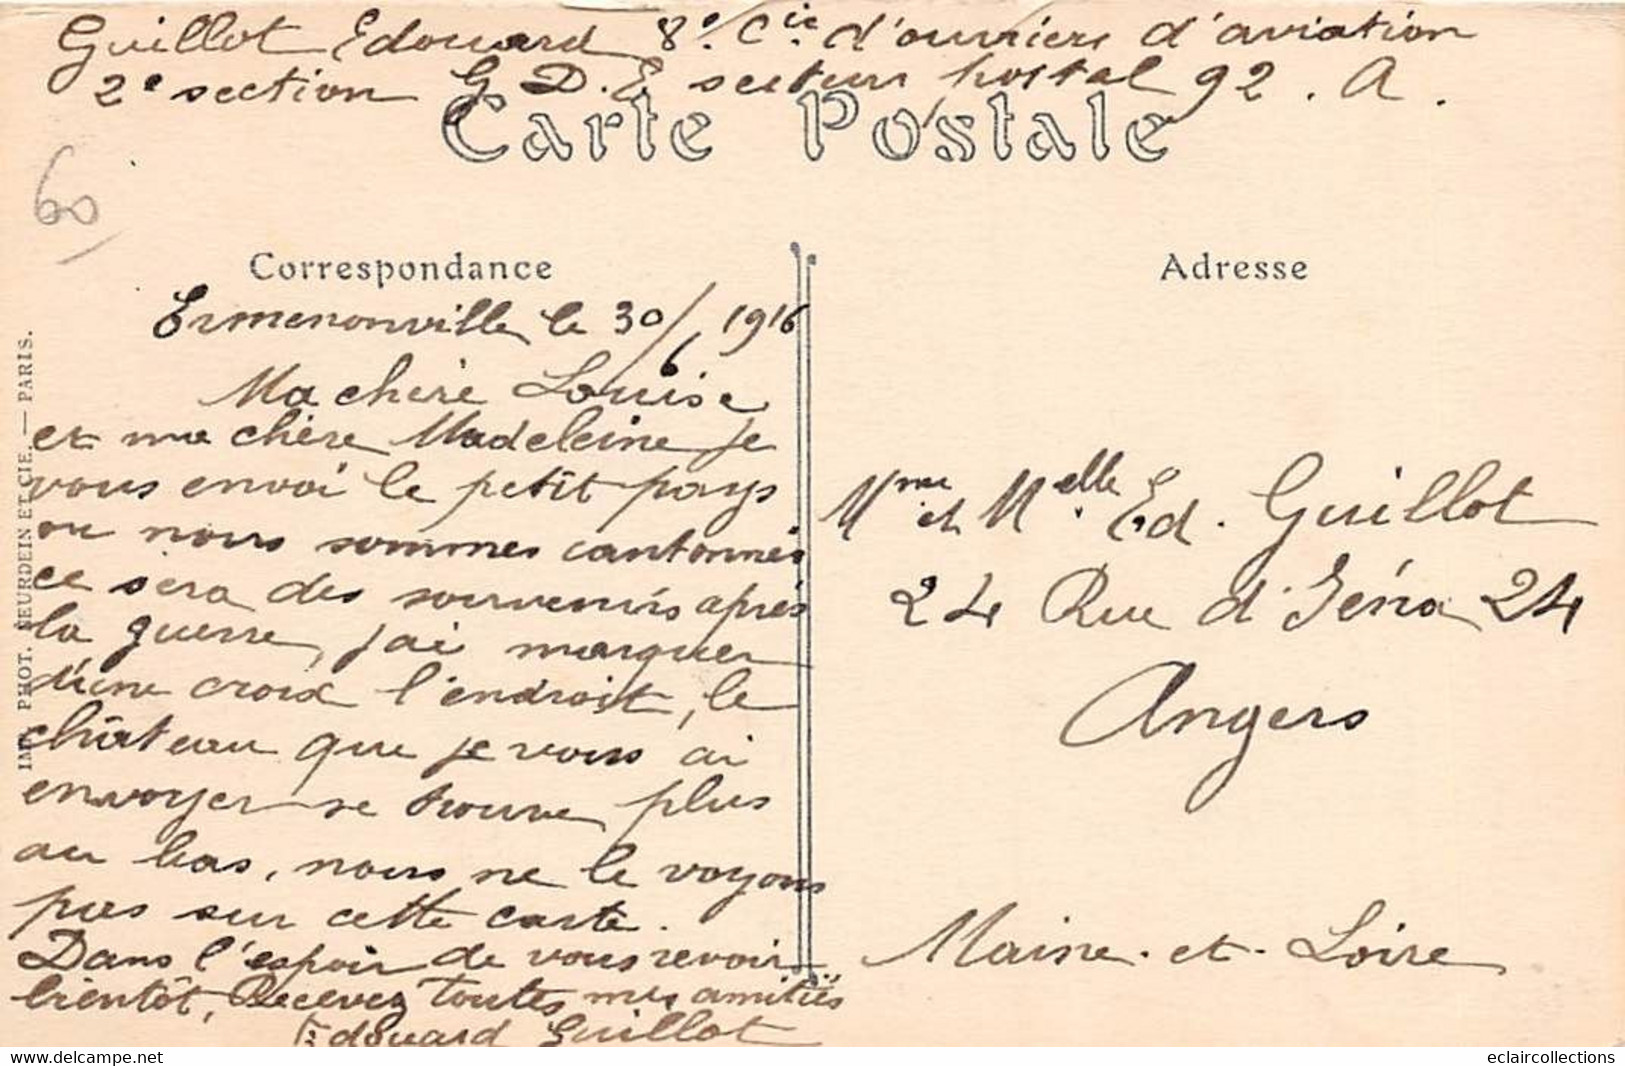 Guillot Edouard 8e Cie d'ouvriers d'aviation
2e section G.D.E secteur postal 92. A.
Carte Postale
60
Correspondance
Adresse
Ermenonville le 30/6 1916
Ma chère Louise
et ma chère Madeleine je
vous envoi le petit pays
ou nous sommes cantonnés
ce sera des souvenirs après
la guerre, j'ai marquer
d'une croix l'endroit, le
château que je vous ai
envoyer se trouve plus
au bas, nous ne le voyons
pas sur cette carte.
Dans l'espoir de vous revoir
bientôt, Recevez toutes mes amitiés
Edouard Guillot
Mme et Melle Ed. Guillot
24 Rue d'Iéna 24
Angers
Maine-et-Loire
IMP. PHOT. NEURDEIN ET CIE. — PARIS.
DELCAMPE.NET
eclaircollections